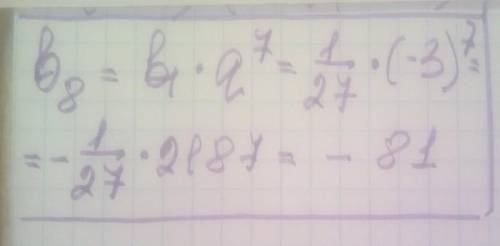 b₈ = b₁ · q⁷ = 1/27 · (-3)⁷ =
= - 1/27 · 2187 = - 81